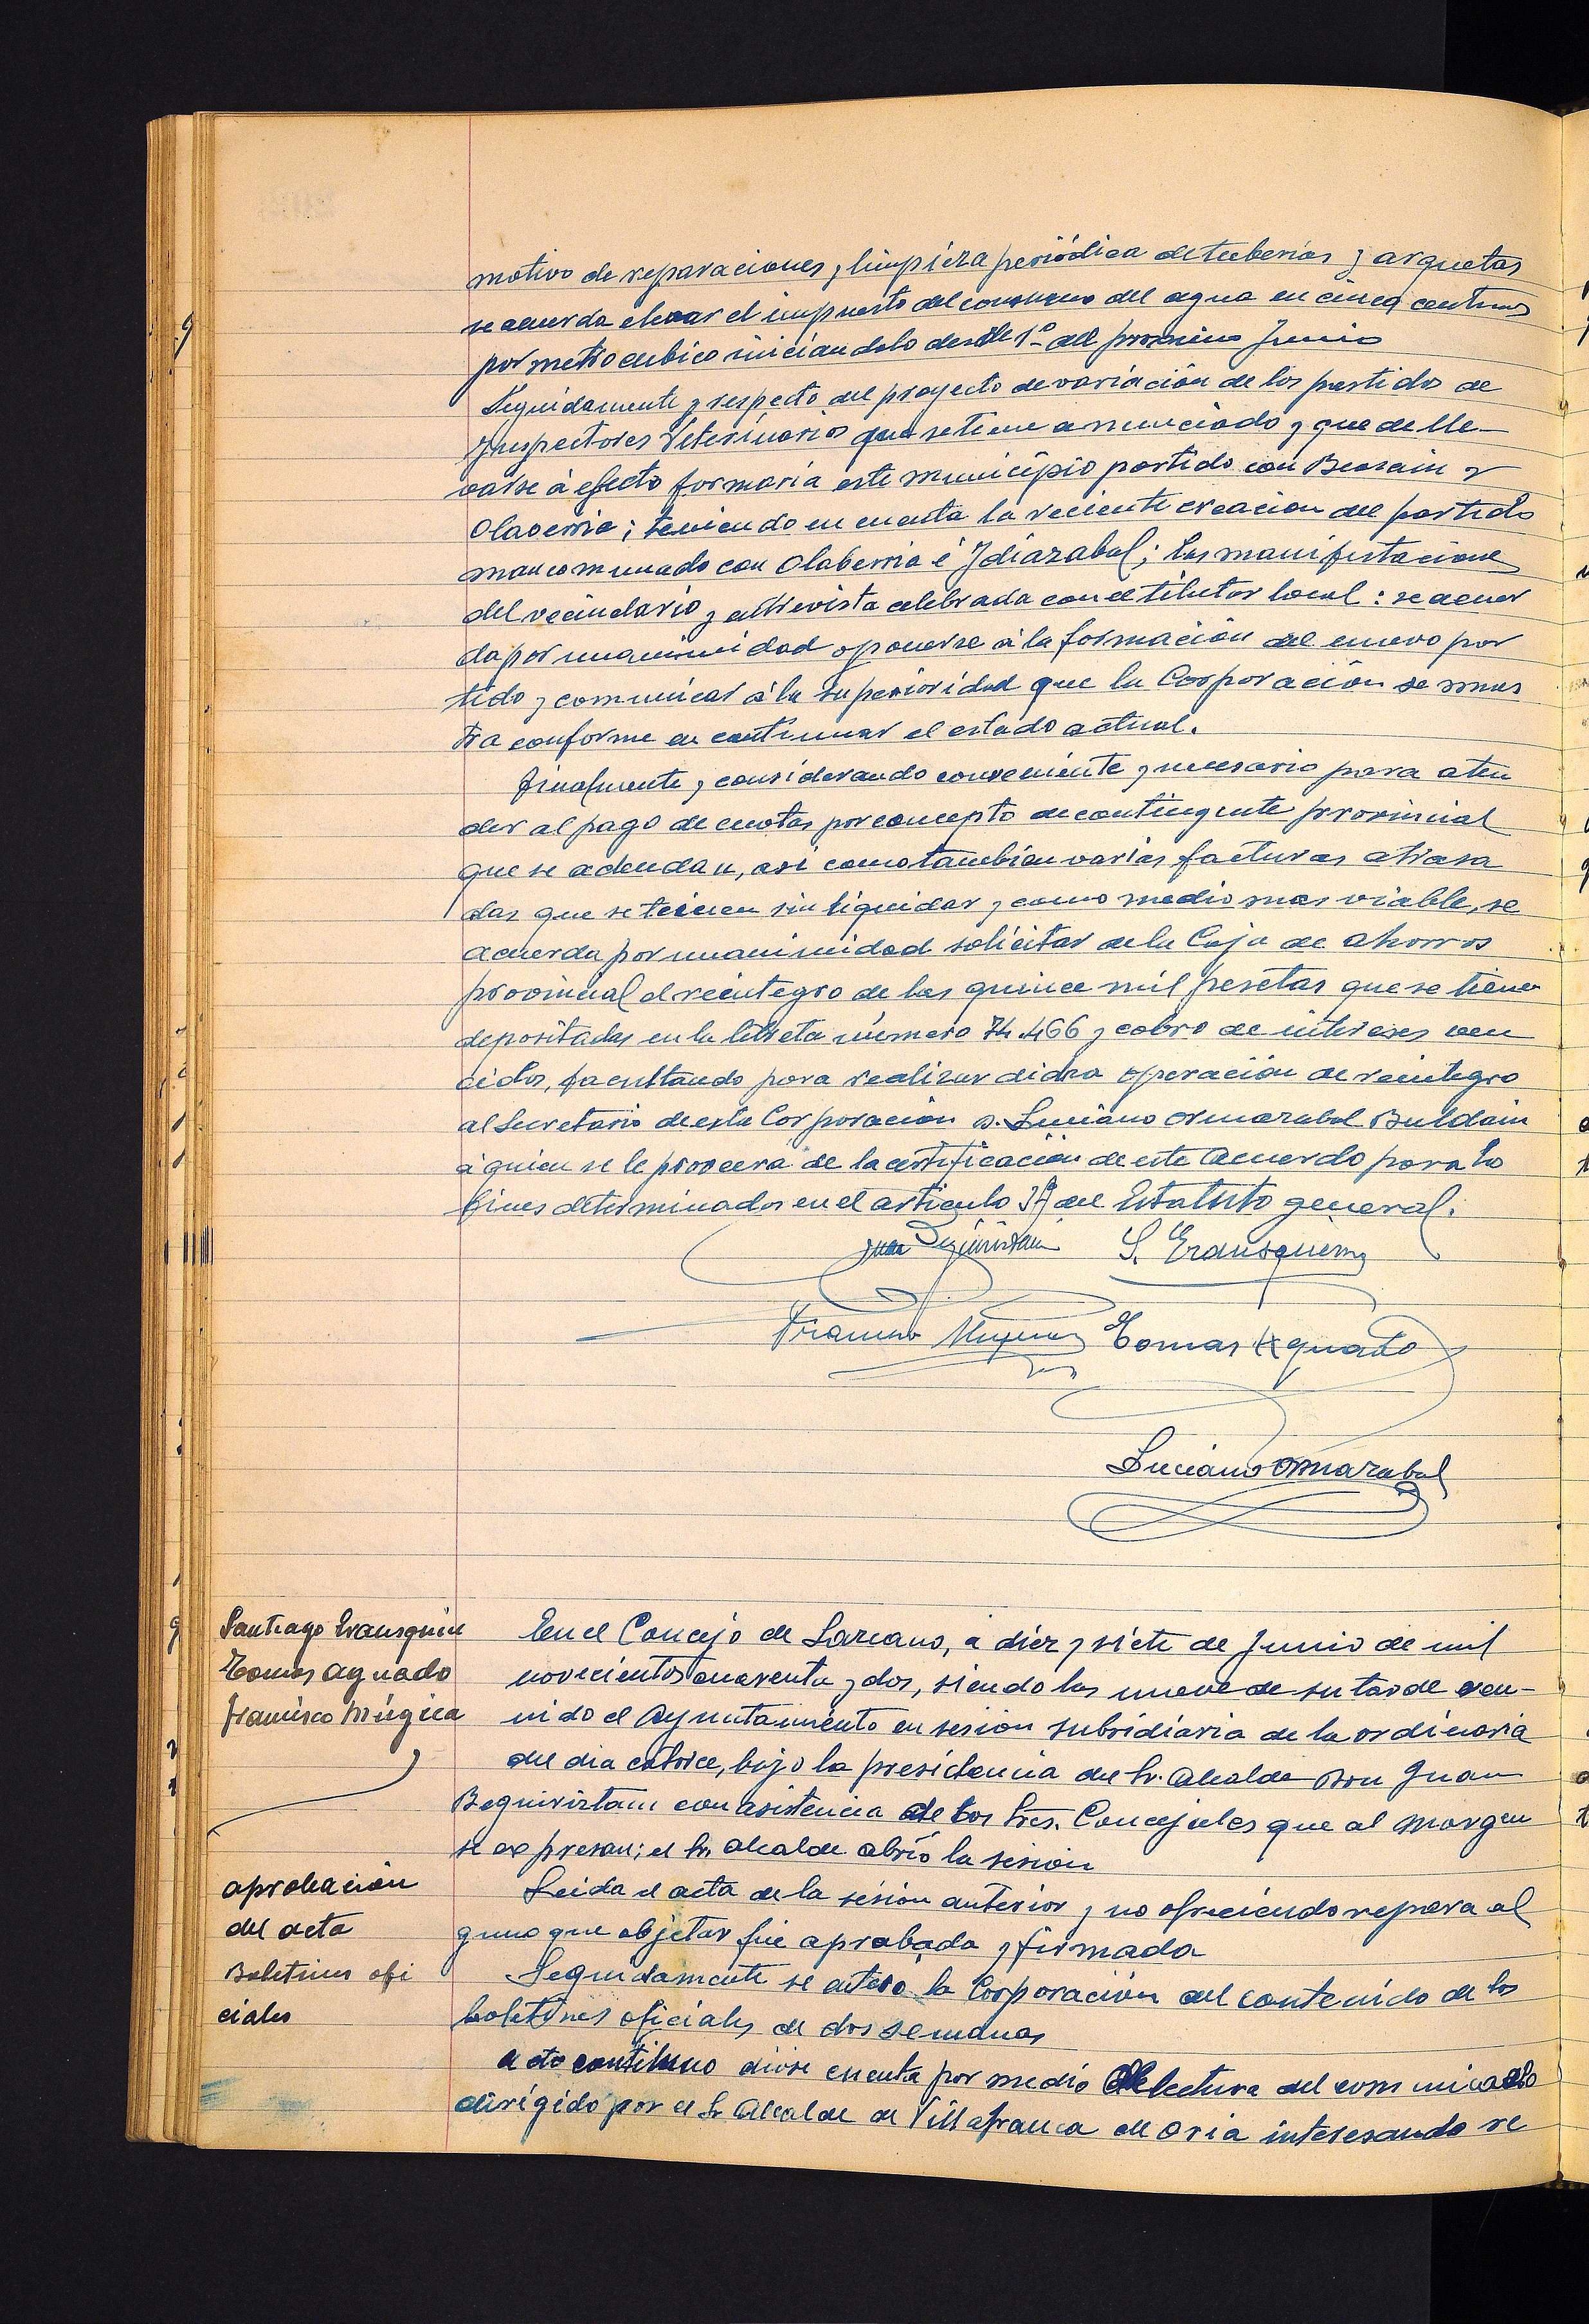 motivo de reparaciones y limpieza periódica de tuberias y arquetas
se acuerda elevar el impuesto del consumo del agua en cinco centimos
por metro cubico iniciandolo desde 1º del proximo Junio
Seguidamente y respecto del proyecto de variación de los partidos de
Inspectores Veterinarios que se tiene anunciado y que de lle-
varse á efecto formaria este municipio partido con Beasain y
Olaberria; teniendo en cuenta la reciente creacion del partido
mancomunado con Olaberria é Idiazabal; las manifestaciones
del vecindario y entrevista celebrada con el titular local: se acuer
da por unanimidad oponerse á la formación del nuevo par
tido y comunicar á la superioridad que la Corporación se mues
tra conforme en continuar el estado actual.
Finalmente y considerando conveniente y necesario para aten
der al pago de cuotas por concepto de contingente provincial
que se adeudan, asi como tambien varias facturas atrasa
das que se tienen sin liquidar y como medio mas viable, se
acuerda por unanimidad solicitar de la Caja de ahorros
provincial el reintegro de las quince mil pesetas que se tienen
depositadas en la libreta número 74.466 y cobro de intereses ven
cidos, facultando para realizar dicha operación de reintegro
al Secretario de esta Corporación D. Luciano Ormazabal Buldain
á quien se le proveera de la certificación de este acuerdo para los
fines determinados en el articulo 37 del Estatuto general.
Juan Beguiristain S. Erausquin
Francisco Mugica Tomas Aguado
Luciano Ormazabal
Santiago Erausquin
Tomas Aguado
Francisco Múgica
En el Concejo de Lazcano, a diez y siete de Junio de mil
novecientos cuarenta y dos, siendo las nueve de su tarde reu-
nido el Ayuntamiento en sesion subsidiaria de la ordinaria
del dia catorce, bajo la presidencia del Sr. Alcalde Don Juan
Beguiristain con asistencia de los Sres. Concejales que al margen
se expresan; el Sr. alcalde abrió la sesion
aprobación
del acta
Leida el acta de la sesion anterior y no ofreciendo reparo al
guno que objetar fue aprobada y firmada
Boletines ofi
ciales
Seguidamente se enteró la Corporación del contenido de los
boletines oficiales de dos semanas
acto continuo diose cuenta por medio de lectura del comunicado
dirigido por el Sr Alcalde de Villafranca de Oria interesando se